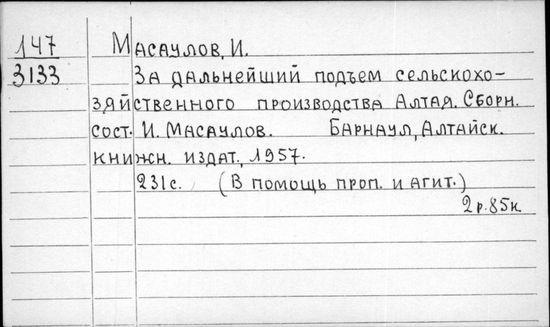 147 Масаулов, И.
3133 За дальнейший подъем сельскохо-
зяйственного производства Алтая. Сборн.
сост. И. Масаулов. Барнаул, Алтайск.
книжн. издат., 1957.
231с. (В помощь проп. и агит.)
2р.85к